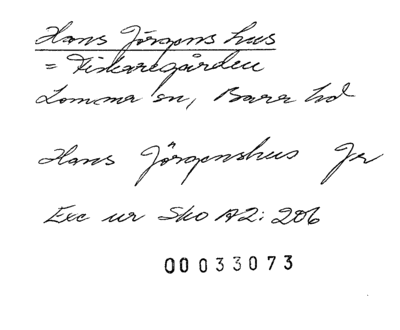 Hans Jörgens hus
= Fiskaregården
Lomma sn, Bara hd
Hans Jörgenshus Jr
Exc ur Sko A2: 206
00033073